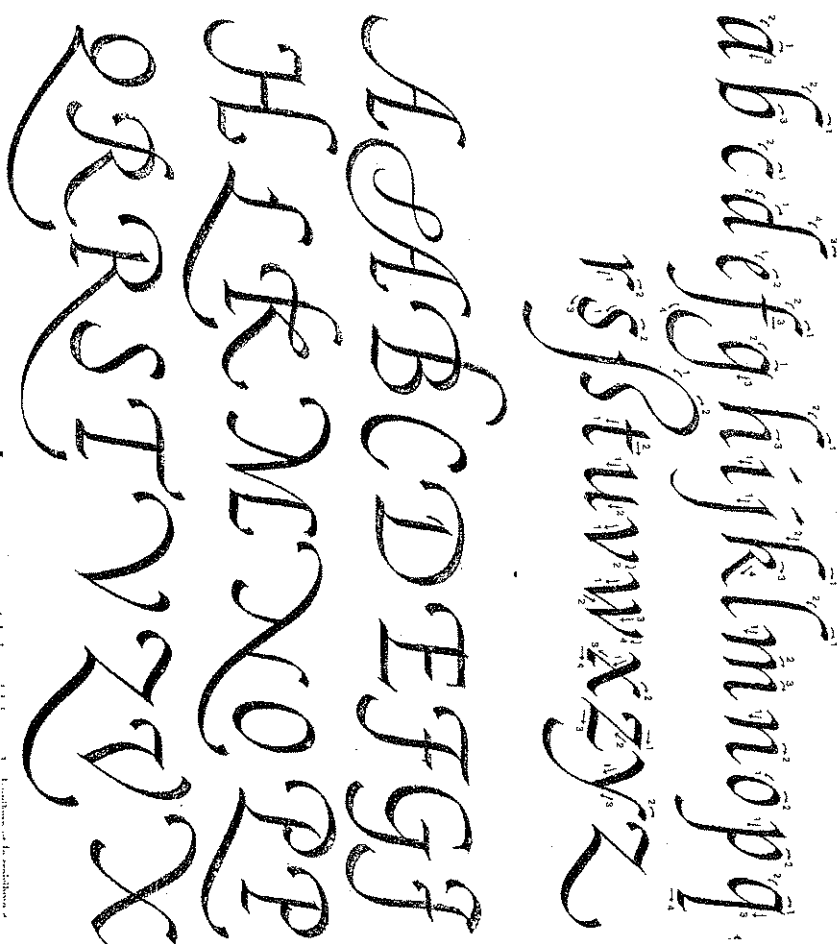 a b c d e f g h i j k l m n o p q
r s ß t u v w x z y z
A A B C D E F G J
H L K M N O P P
Q R R S T V Z V X